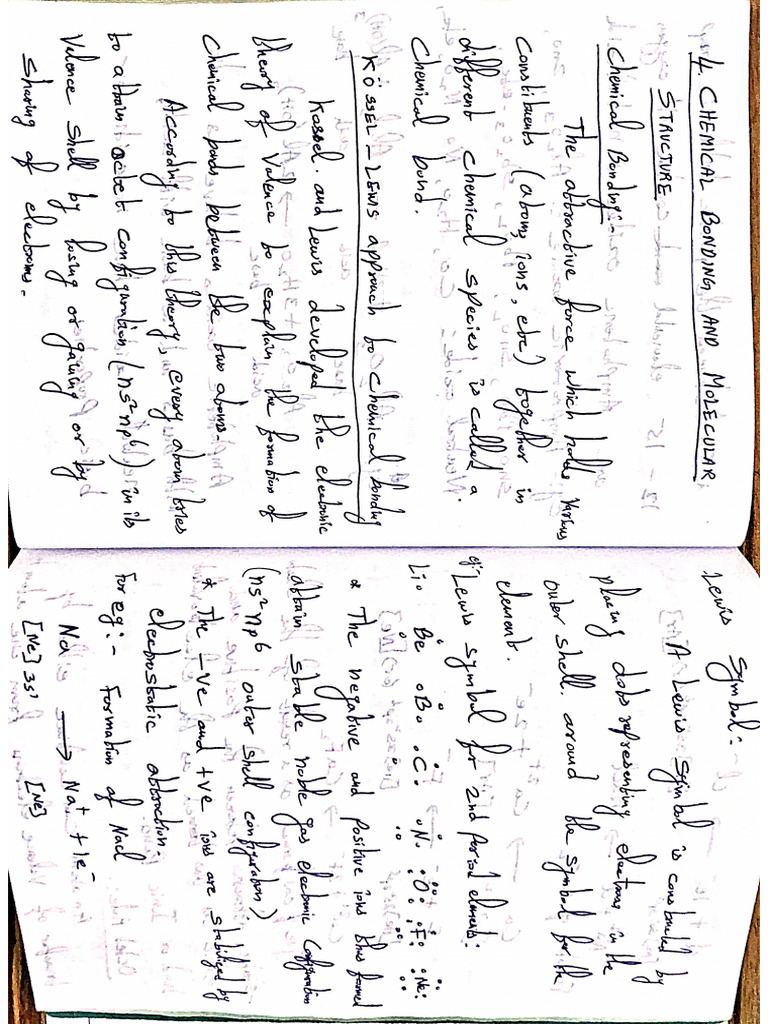 4. CHEMICAL BONDING AND MOLECULAR
STRUCTURE
Chemical Bonding:-
The attractive force which holds various
constituents (atoms, ions, etc) together in
different chemical species is called a
Chemical bond.
KÖSSEL-LEWIS approach to chemical bonding
Kossel and Lewis developed the electronic
theory of valence to explain the formation of
Chemical bonds between the two atoms.
According to this theory, every atom tries
to attain octet configuration (ns²np⁶) in its
Valence shell by losing or gaining or by
Sharing of electrons.
Lewis Symbol:-
A Lewis Symbol is constructed by
placing dots representing electrons in the
outer shell around the symbol for the
element.
eg:- Lewis symbol for 2nd period elements:
Li· Be ·B· ·C· ·N· ·O: ·F: :Ne:
* The negative and positive ions thus formed
attain stable noble gas electronic configuration
(ns²np⁶ outer shell configuration).
* The -ve and +ve ions are stabilized by
electrostatic attraction.
For eg:- Formation of NaCl
Na ⟶ Na⁺ + 1e⁻
[Ne] 3s¹ [Ne]